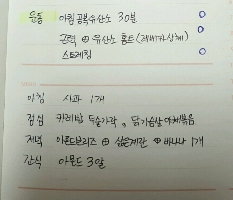 운동 아침 공복유산소 30분
근력 ⊕ 유산소 홈트 (레베카상체)
스트레칭
아침 사과 1개
점심 카레밥 두숟가락, 닭가슴살야채볶음
저녁 아몬드브리즈 ⊕ 삶은계란 ⊕ 바나나 1개
간식 아몬드 3알